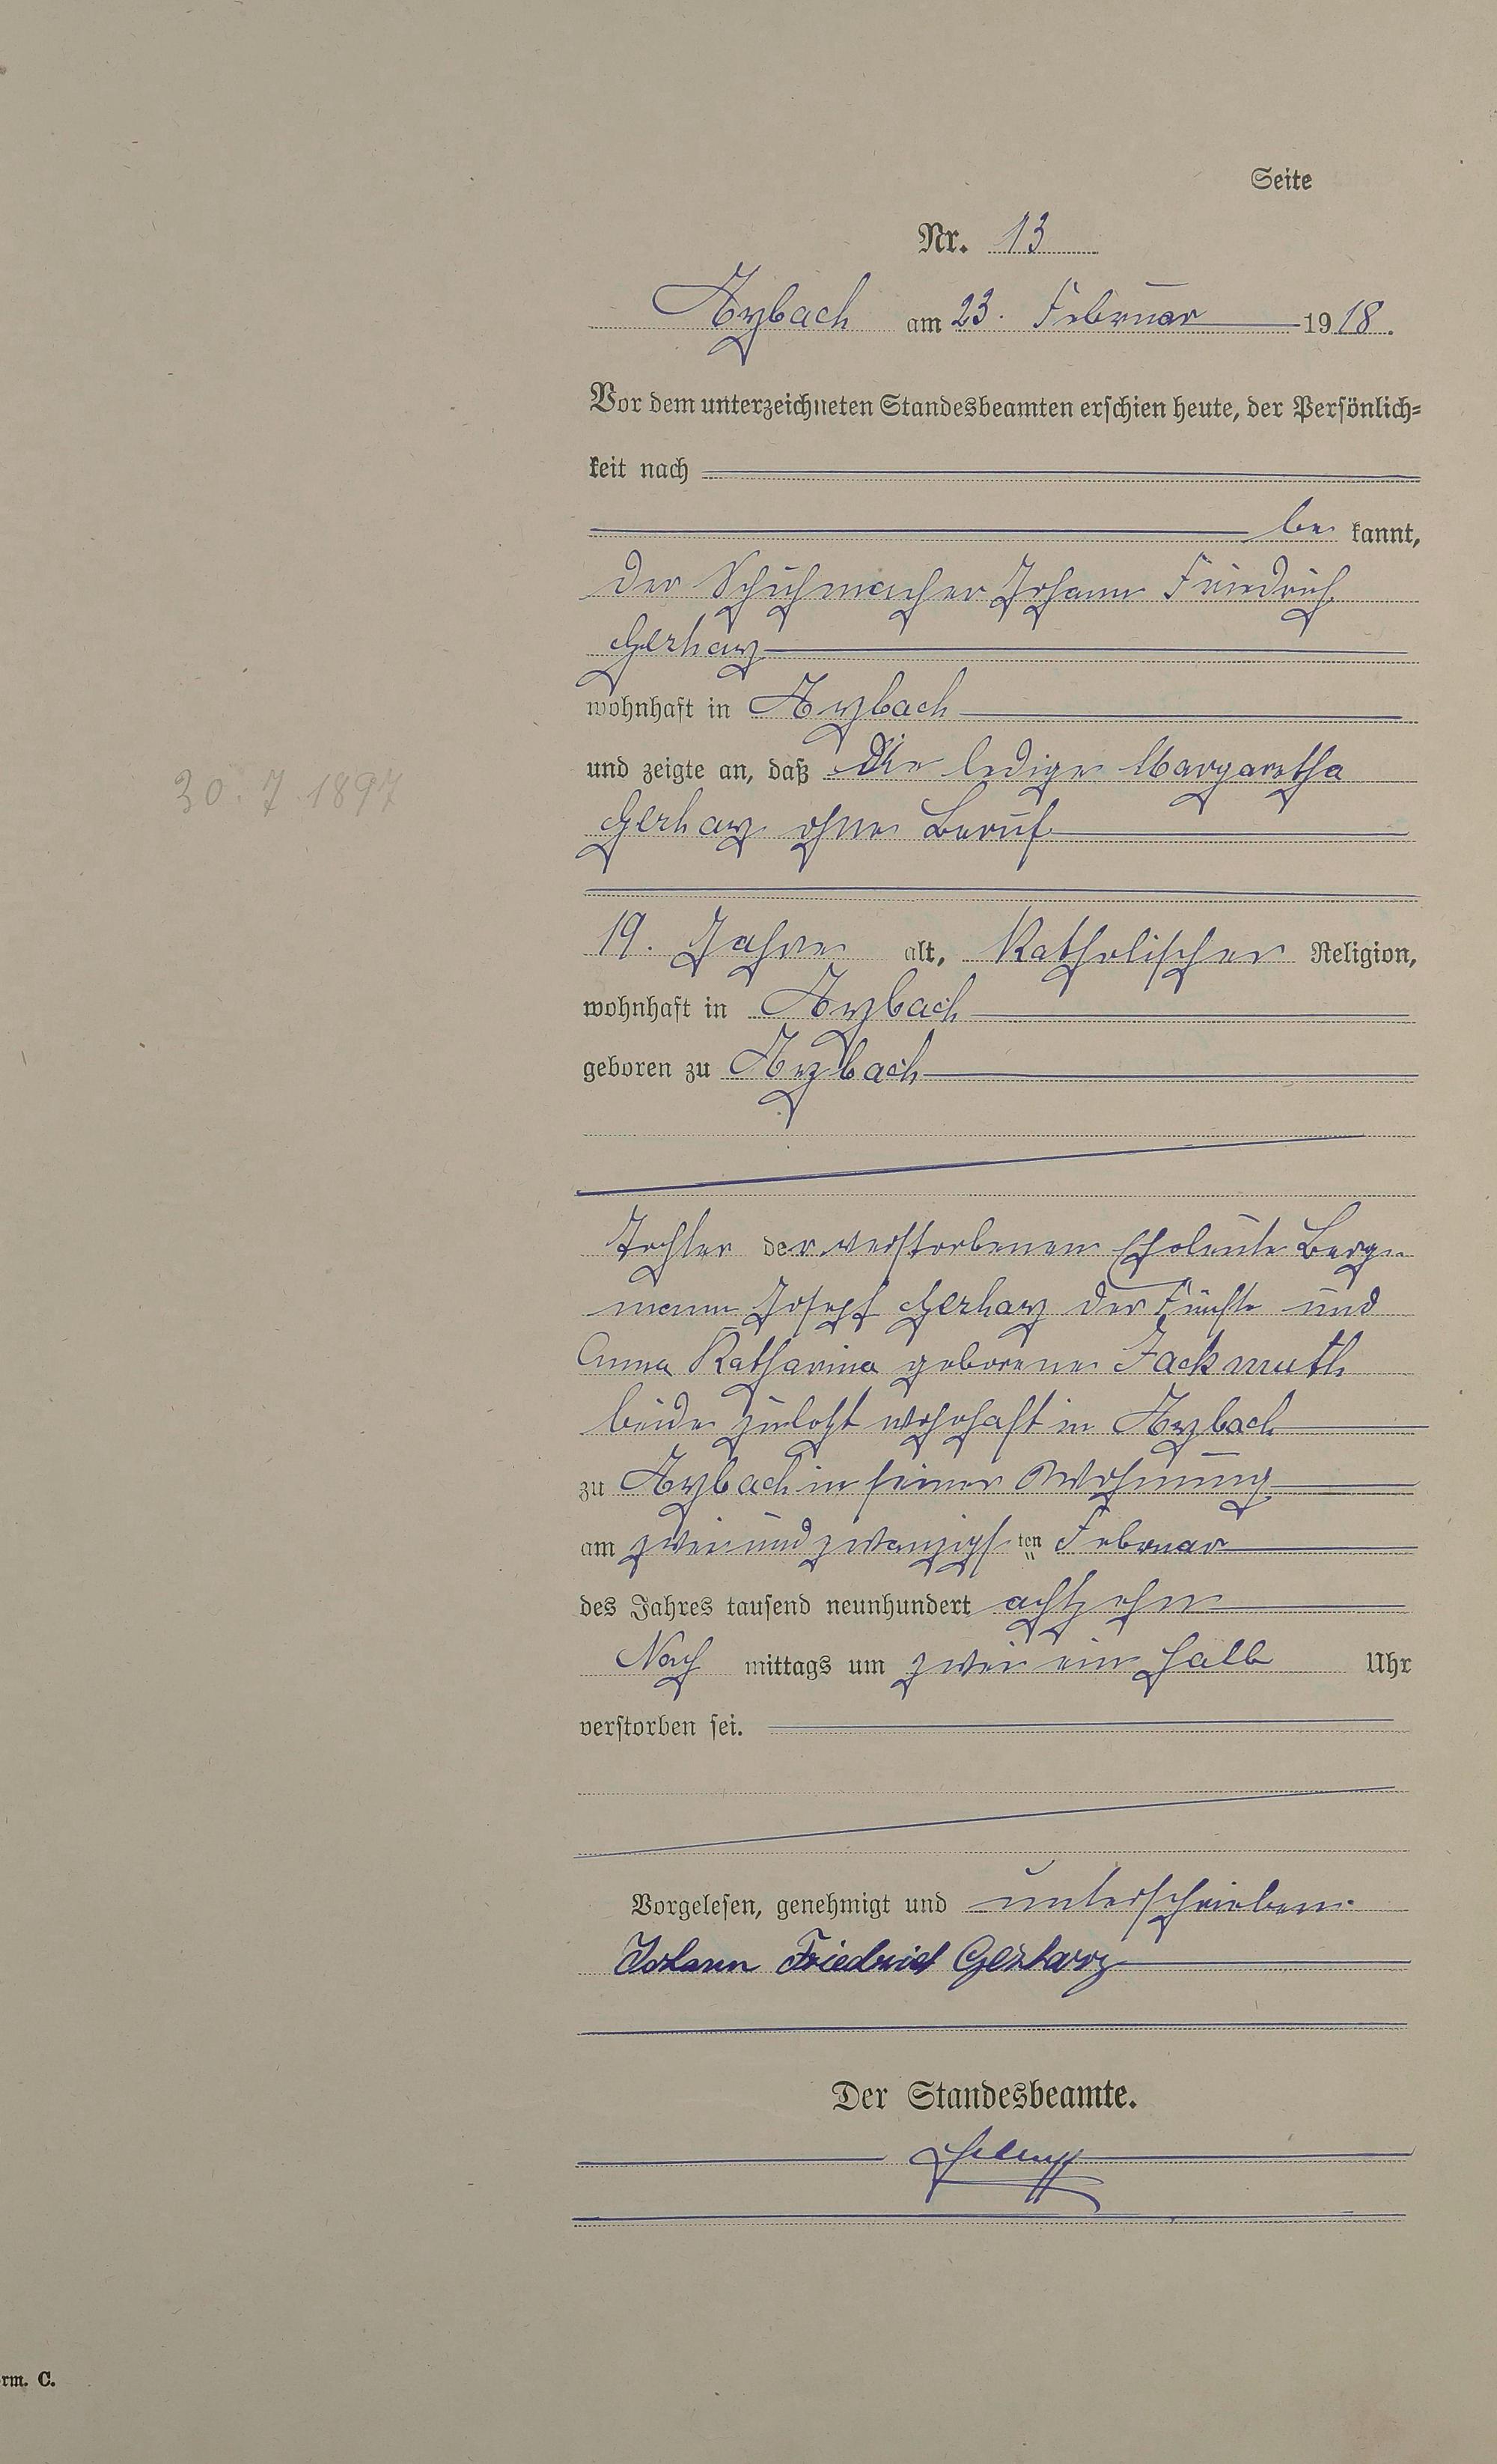 Seite
Nr. 13
Arzbach am 23. Februar 1918.
Vor dem unterzeichneten Standesbeamten erschien heute, der Persönlich-
keit nach
be kannt,
der Schuhmacher Johann Friedrich
Gerharz
wohnhaft in Arzbach
und zeigte an, daß die ledige Margaretha
20. 7. 1897
Gerharz ohne Beruf
19. Jahre alt, Katholischer Religion,
wohnhaft in Arzbach
geboren zu Arzbach
Tochter der verstorbenen Eheleute Berg-
mann Joseph Gerharz der Fünfte und
Anna Katharina geborene Jackmuth
beide zuletzt wohnhaft in Arzbach
zu Arzbach in seiner Wohnung
am zweiundzwanzigsten Februar
des Jahres tausend neunhundert achtzehn
Nach mittags um zwei ein halb Uhr
verstorben sei.
Vorgelesen, genehmigt und unterschrieben
Johann Friedrich Gerharz
Der Standesbeamte.
rm. C.